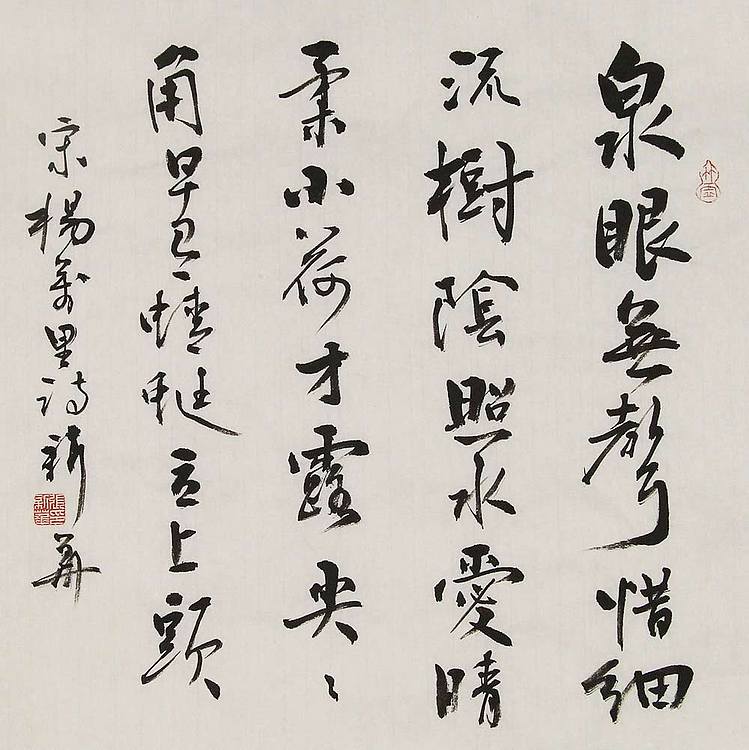 泉眼無聲惜細
流樹陰照水愛晴
柔小荷才露尖〻
角早有蜻蜓立上頭
宋楊萬里詩新華